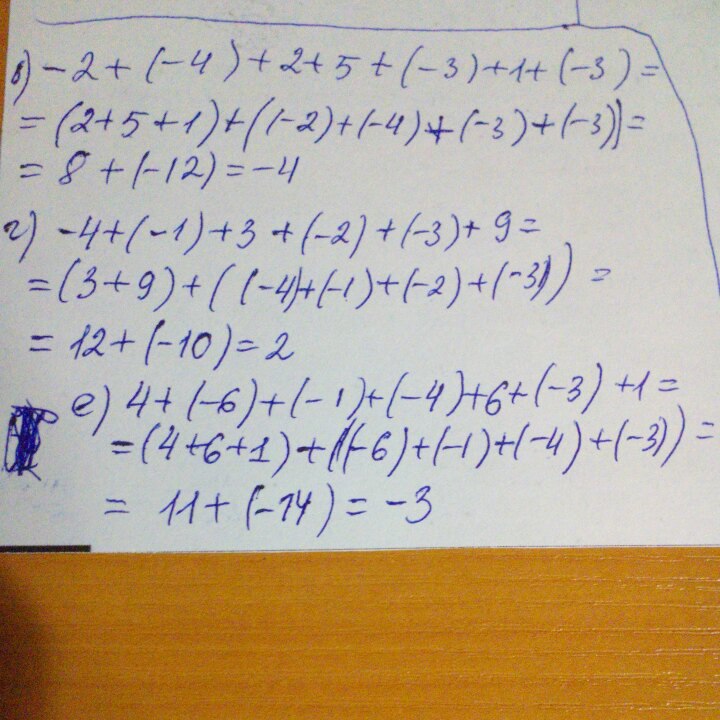 в) -2 + (-4) + 2 + 5 + (-3) + 1 + (-3) =
= (2 + 5 + 1) + ((-2) + (-4) + (-3) + (-3)) =
= 8 + (-12) = -4
г) -4 + (-1) + 3 + (-2) + (-3) + 9 =
= (3 + 9) + ((-4) + (-1) + (-2) + (-3)) =
= 12 + (-10) = 2
е) 4 + (-6) + (-1) + (-4) + 6 + (-3) + 1 =
= (4 + 6 + 1) + ((-6) + (-1) + (-4) + (-3)) =
= 11 + (-14) = -3